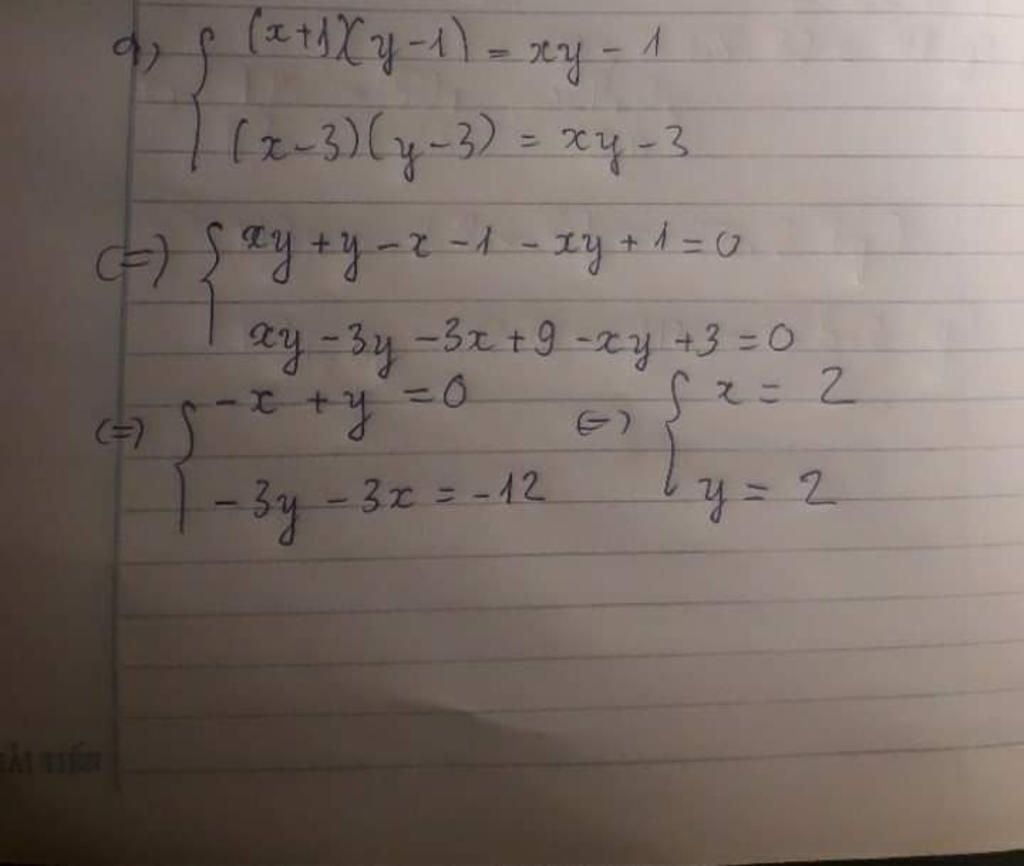 d, { (x+1)(y-1) = xy - 1
(x-3)(y-3) = xy - 3
(=) { xy + y - x - 1 - xy + 1 = 0
xy - 3y - 3x + 9 - xy + 3 = 0
(=) { -x + y = 0 (=) { x = 2
-3y - 3x = -12 y = 2
TIẾN